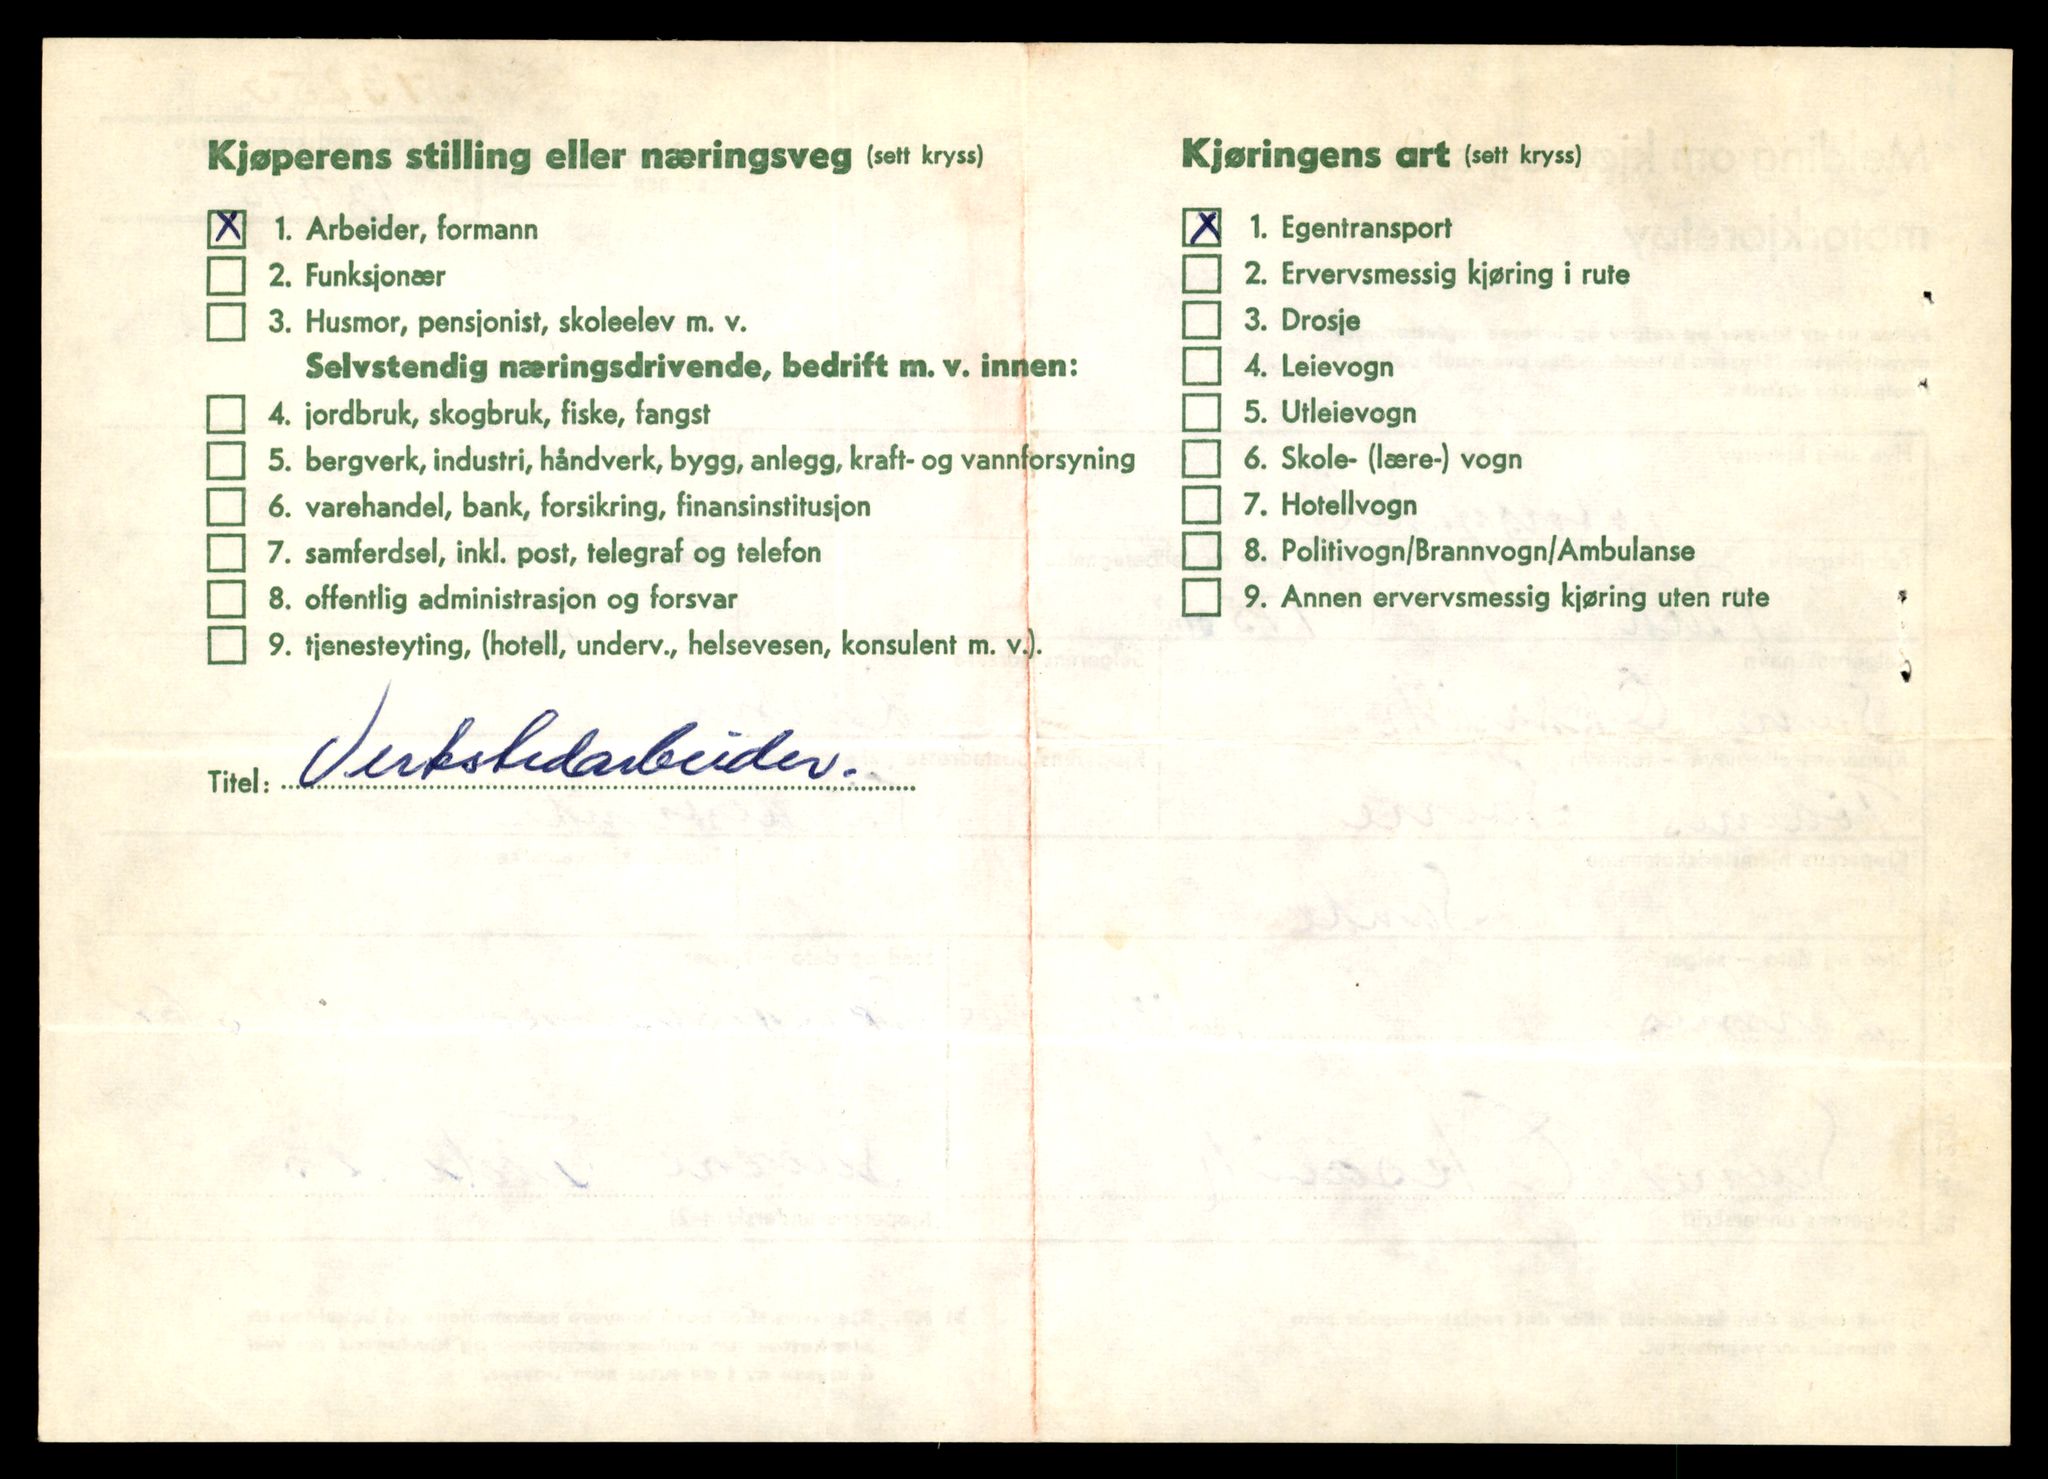 Kjøperens stilling eller næringsveg (sett kryss)
X 1. Arbeider, formann
2. Funksjonær
3. Husmor, pensjonist, skoleelev m. v.
Selvstendig næringsdrivende, bedrift m. v. innen:
4. jordbruk, skogbruk, fiske, fangst
5. bergverk, industri, håndverk, bygg, anlegg, kraft- og vannforsyning
6. varehandel, bank, forsikring, finansinstitusjon
7. samferdsel, inkl. post, telegraf og telefon
8. offentlig administrasjon og forsvar
9. tjenesteyting, (hotell, underv., helsevesen, konsulent m. v.).
Titel: Verkstedarbeider.
Kjøringens art (sett kryss)
X 1. Egentransport
2. Ervervsmessig kjøring i rute
3. Drosje
4. Leievogn
5. Utleievogn
6. Skole- (lære-) vogn
7. Hotellvogn
8. Politivogn/Brannvogn/Ambulanse
9. Annen ervervsmessig kjøring uten rute